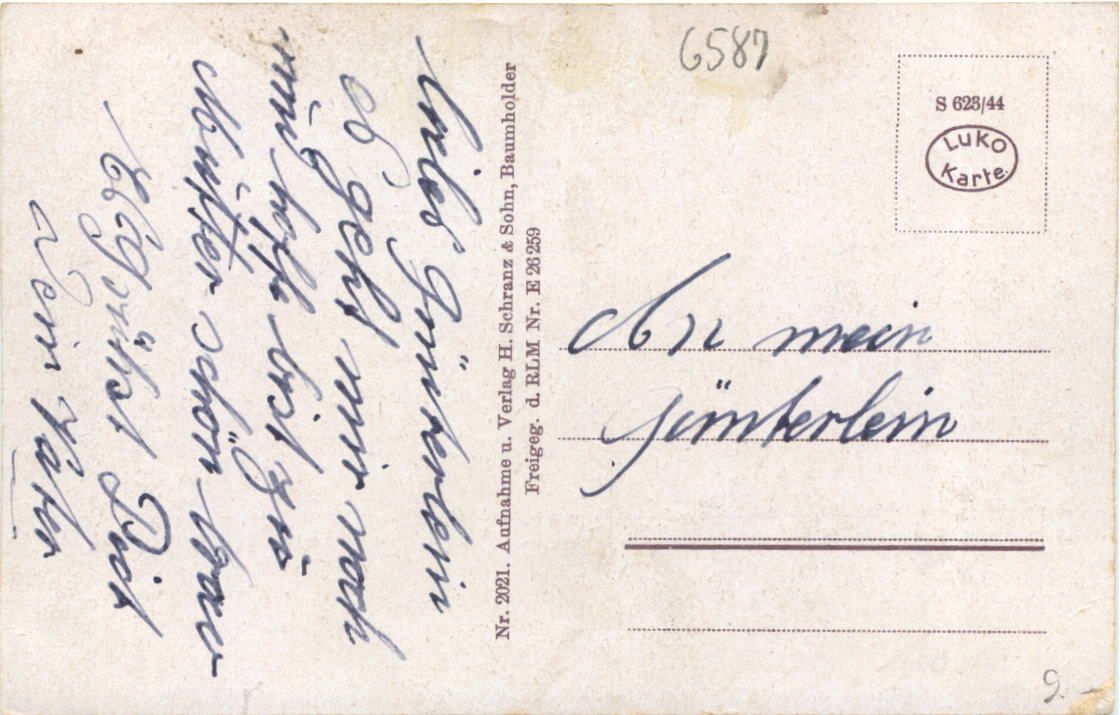 Liebes Günterlein
es geht mir noch
und hoffe bist zu
Mutter schön brav
Es grüßt Dich
Dein Vater
Nr. 2021. Aufnahme u. Verlag H. Schranz & Sohn, Baumholder
Freigeg. d. RLM Nr. E 26259
6587
S 623/44
LUKO
Karte.
An mein
Günterlein
9.-